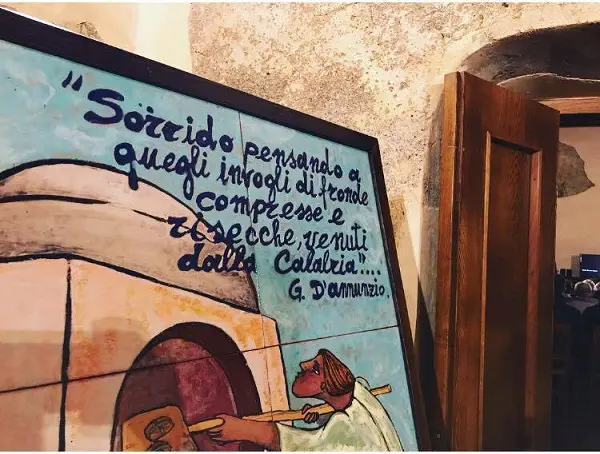 "Sorrido pensando a
quegli invogli di fronde
compresse e
risecche, venuti
dalla Calabria"....
G. D'annunzio.